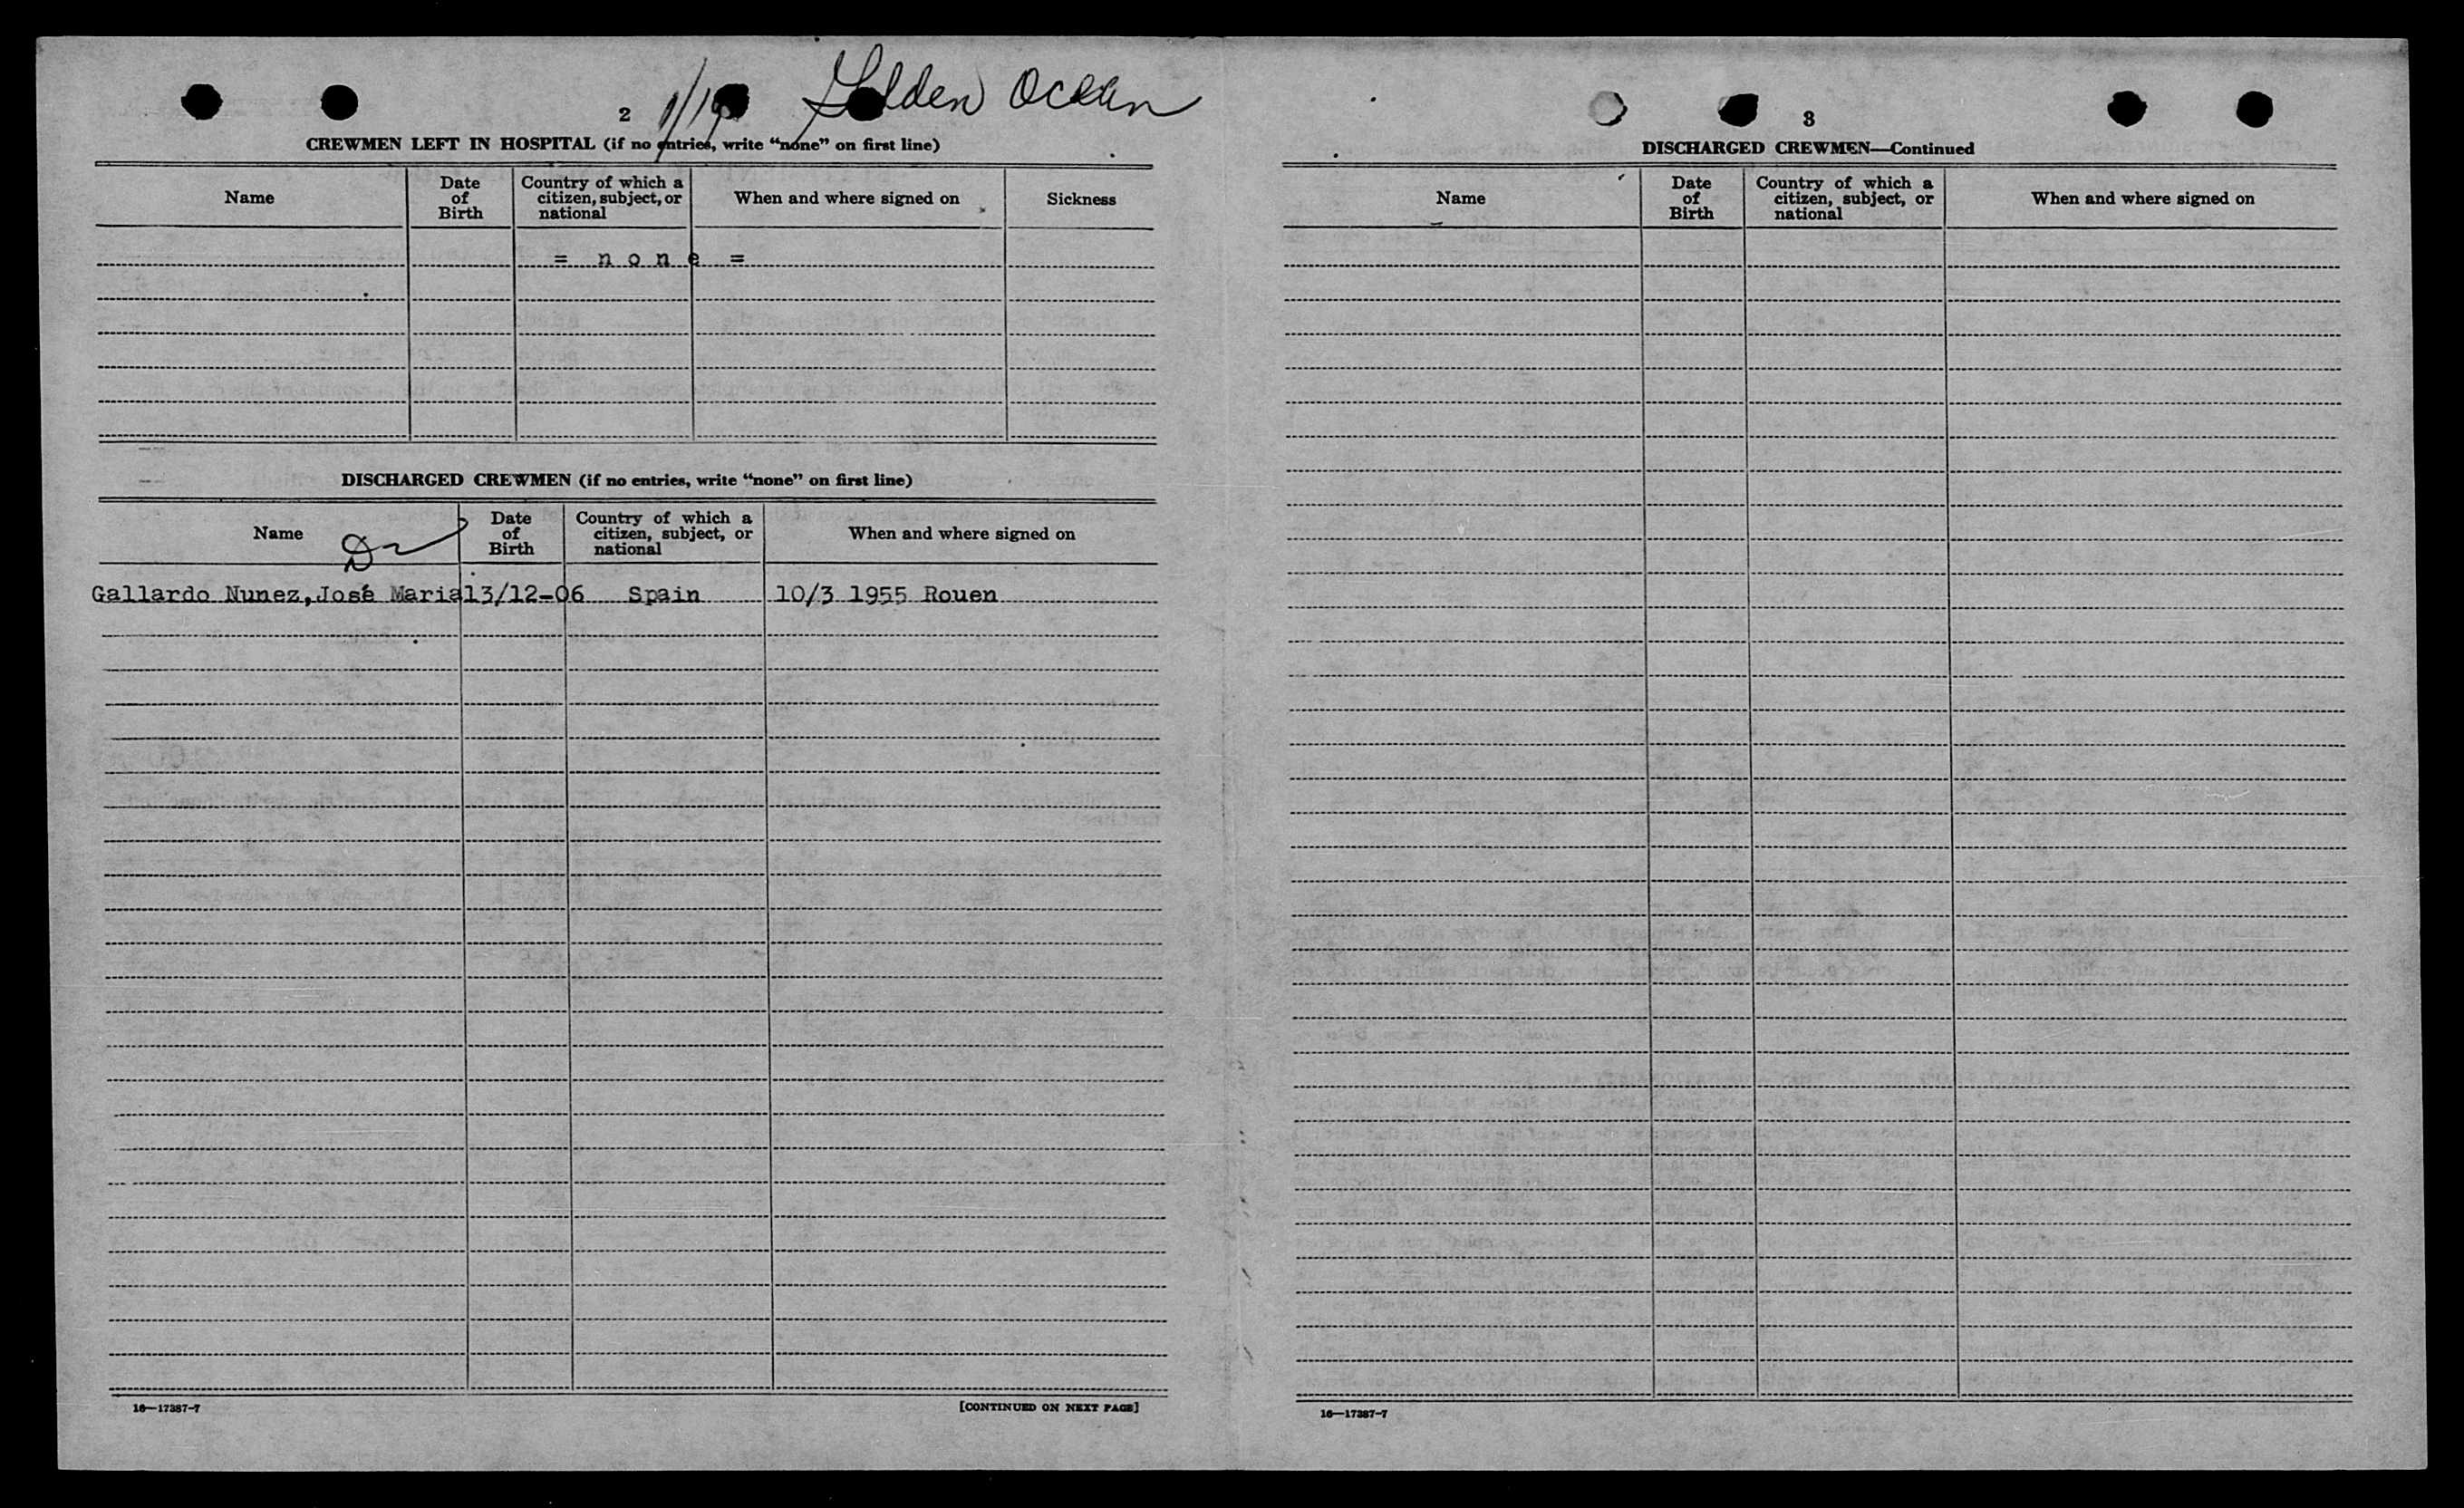 2 1/19 Golden Ocean
CREWMEN LEFT IN HOSPITAL (if no entries, write “none” on first line)
Name Date of Birth Country of which a citizen, subject, or national When and where signed on Sickness
= n o n e =
DISCHARGED CREWMEN (if no entries, write “none” on first line)
Name Date of Birth Country of which a citizen, subject, or national When and where signed on
Gallardo Nunez, José Maria 13/12-06 Spain 10/3 1955 Rouen
16—17387-7 [CONTINUED ON NEXT PAGE]
3
DISCHARGED CREWMEN—Continued
Name Date of Birth Country of which a citizen, subject, or national When and where signed on
16—17387-7